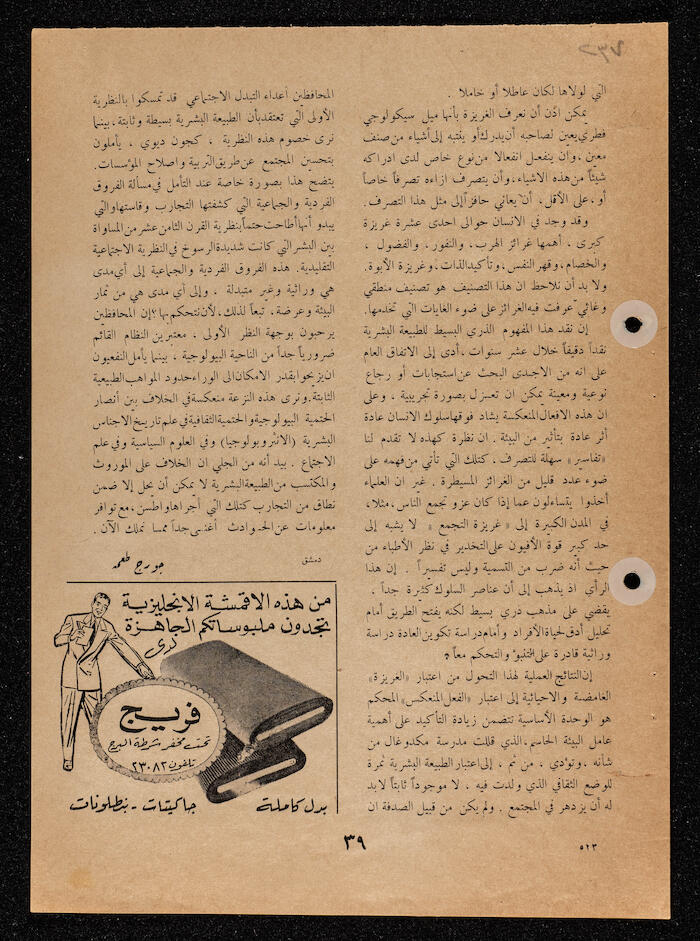 التي لولاها لكان عاطلا أو خاملا .
يمكن اذن أن نعرف الغريزة بأنها ميل سيكولوجي
فطري يعين لصاحبه أن يدرك أو ينتبه إلى أشياء من صنف
معين ، وان ينفعل انفعالا من نوع خاص لدى ادراكه
شيئاً من هذه الاشياء ، وأن يتصرف ازاءه تصرفاً خاصاً
أو ، على الأقل ، أن يعاني حافزاً إلى مثل هذا التصرف .
وقد وجد في الانسان حوالى احدى عشرة غريزة
كبرى ، أهمها غرائز الهرب ، والنفور ، والفضول ،
والخصام ، وقهر النفس ، وتأكيد الذات ، وغريزة الأبوة .
ولا بد أن نلاحظ ان هذا التصنيف هو تصنيف منطقي
وغائي عرفت فيه الغرائز على ضوء الغايات التي تخدمها .
إن نقد هذا المفهوم الذري البسيط للطبيعة البشرية
نقداً دقيقاً خلال عشر سنوات ، أدى إلى الاتفاق العام
على انه من الاجدى البحث عن استجابات أو رجاع
نوعية ومعينة يمكن ان تعزل بصورة تجريبية ، وعلى
ان هذه الافعال المنعكسة يشاد فوقها سلوك الانسان عادة
أثر عادة بتأثير من البيئة . ان نظرة كهذه لا تقدم لنا
« تفاسير » سهلة للتصرف ، كتلك التي تأتي من فهمه على
ضوء عدد قليل من الغرائز المسيطرة . غير ان العلماء
أخذوا يتساءلون عما إذا كان عزو تجمع الناس ، مثلا ،
في المدن الكبيرة إلى « غريزة التجمع » لا يشبه إلى
حد كبير قوة الأفيون على التخدير في نظر الأطباء من
حيث أنه ضرب من التسمية وليس تفسيراً . إن هذا
الرأي اذ يذهب إلى أن عناصر السلوك كثيرة جداً ،
يقضي على مذهب ذري بسيط لكنه يفتح الطريق أمام
تحليل أدق لحياة الأفراد وأمام دراسة تكوين العادة دراسة
وراثية قادرة على التنبؤ والتحكم معاً .
إن النتائج العملية لهذا التحول من اعتبار « الغريزة »
الغامضة والاحيائية إلى اعتبار « الفعل المنعكس » المحكم
هو الوحدة الأساسية تتضمن زيادة التأكيد على أهمية
عامل البيئة الحاسم ، الذي قللت مدرسة مكدوغال من
شأنه ، وتؤدي ، من ثم ، إلى اعتبار الطبيعة البشرية ثمرة
للوضع الثقافي الذي ولدت فيه ، لا موجوداً ثابتاً لابد
له أن يزدهر في المجتمع . ولم يكن من قبيل الصدفة ان
المحافظين أعداء التبدل الاجتماعي قد تمسكوا بالنظرية
الأولى التي تعتقد بأن الطبيعة البشرية بسيطة وثابتة ، بينما
نرى خصوم هذه النظرية ، كجون ديوي ، يأملون
بتحسين المجتمع عن طريق التربية واصلاح المؤسسات .
يتضح هذا بصورة خاصة عند التأمل في مسألة الفروق
الفردية والجماعية التي كشفتها التجارب وقاستها والتي
يبدو أنها أطاحت حتماً بنظرية القرن الثامن عشر من المساواة
بين البشر التي كانت شديدة الرسوخ في النظرية الاجتماعية
التقليدية . هذه الفروق الفردية والجماعية إلى أي مدى
هي وراثية وغير متبدلة ، وإلى أي مدى هي من ثمار
البيئة وعرضة ، تبعاً لذلك ، لأن نتحكم بها ؟ إن المحافظين
يرحبون بوجهة النظر الأولى ، معتبرين النظام القائم
ضرورياً جداً من الناحية البيولوجية ، بينما يأمل النفعيون
ان يزيحوا بقدر الامكان الى الوراء حدود المواهب الطبيعية
الثابتة . ونرى هذه النزعة منعكسة في الخلاف بين أنصار
الحتمية البيولوجية والحتمية الثقافية في علم تاريخ الاجناس
البشرية (الانثروبولوجيا) وفي العلوم السياسية وفي علم
الاجتماع . بيد أنه من الجلي ان الخلاف على الموروث
والمكتسب من الطبيعة البشرية لا يمكن أن يحل إلا ضمن
نطاق من التجارب كتلك التي أجراها واطسن ، مع توافر
معلومات عن الحوادث أغنى جداً مما نملك الآن .
دمشق جورج طعمه
من هذه الاقمشة الانجليزية
تجدون ملبوساتكم الجاهزة
لدى
فريج
تحت مخفر شرطة البرج
تلفون ٢٣٠٨٢
بدل كاملة جاكيتات - بنطلونات
٣٩
٥٢٣